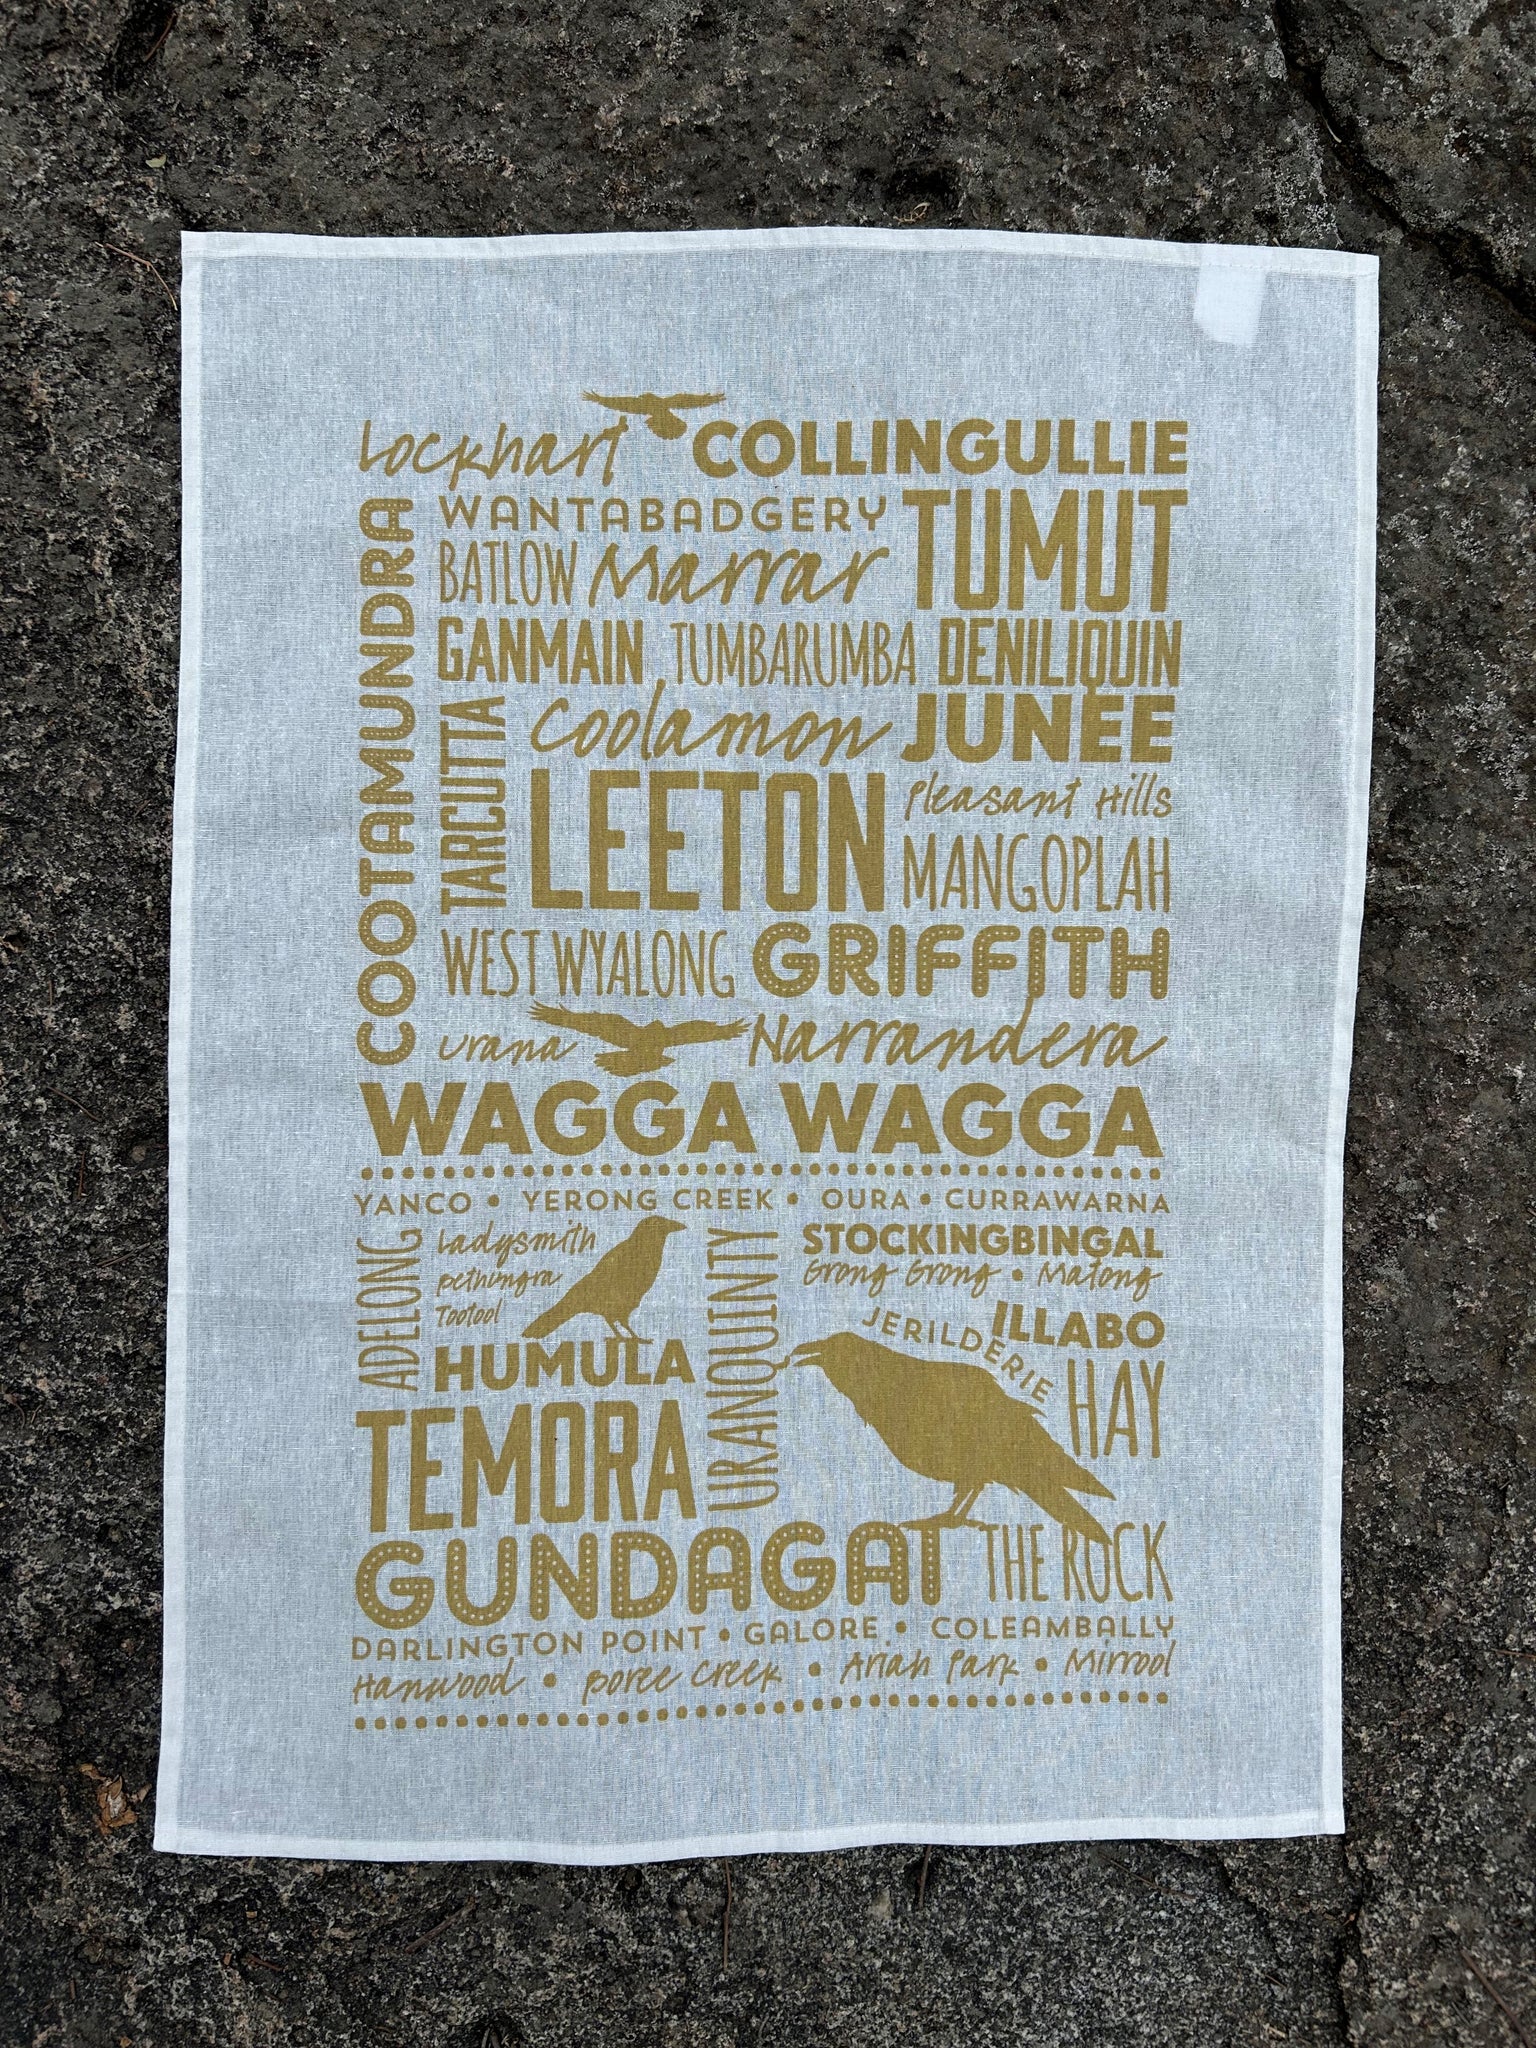 Lockhart COLLINGULLIE
COOTAMUNDRA
WANTABADGERY
TUMUT
BATLOW Marrar
GANMAIN TUMBARUMBA DENILIQUIN
TARCUTTA
Coolamon JUNEE
LEETON
Pleasant Hills
MANGOPLAH
WEST WYALONG GRIFFITH
Urana Narrandera
WAGGA WAGGA
YANCO • YERONG CREEK • OURA • CURRAWARNA
ADELONG
Ladysmith
Bethungra
Tootool
HUMULA
URANQUINTY
STOCKINGBINGAL
Grong Grong • Matong
ILLABO
JERILDERIE
HAY
TEMORA
GUNDAGAI
THE ROCK
DARLINGTON POINT • GALORE • COLEAMBALLY
Hanwood • Boree Creek • Ariah Park • Mirrool